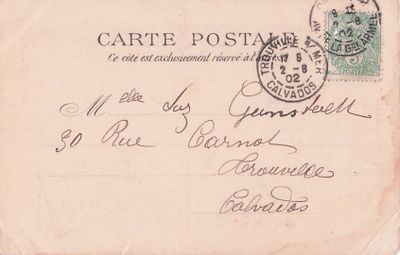 CARTE POSTALE
Ce côté est exclusivement réservé à l'adresse
TROUVILLE S/ MER
17 5
2 - 8
02
CALVADOS
8
2 - 8
02
DE LA GDE ARMÉE
Melle Suz
30 Rue Carnot
Trouville
Calvados